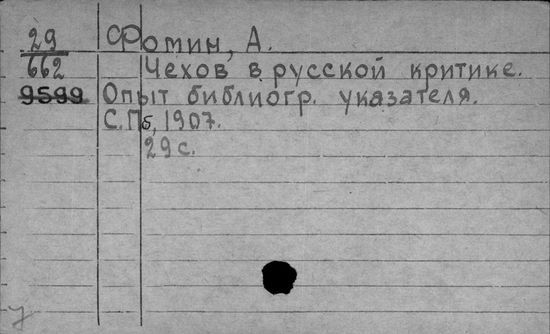 29 Фомин, А.
662 Чехов в русской критике.
9599 Опыт библиогр. указателя.
С.Пб, 1907.
29 с.